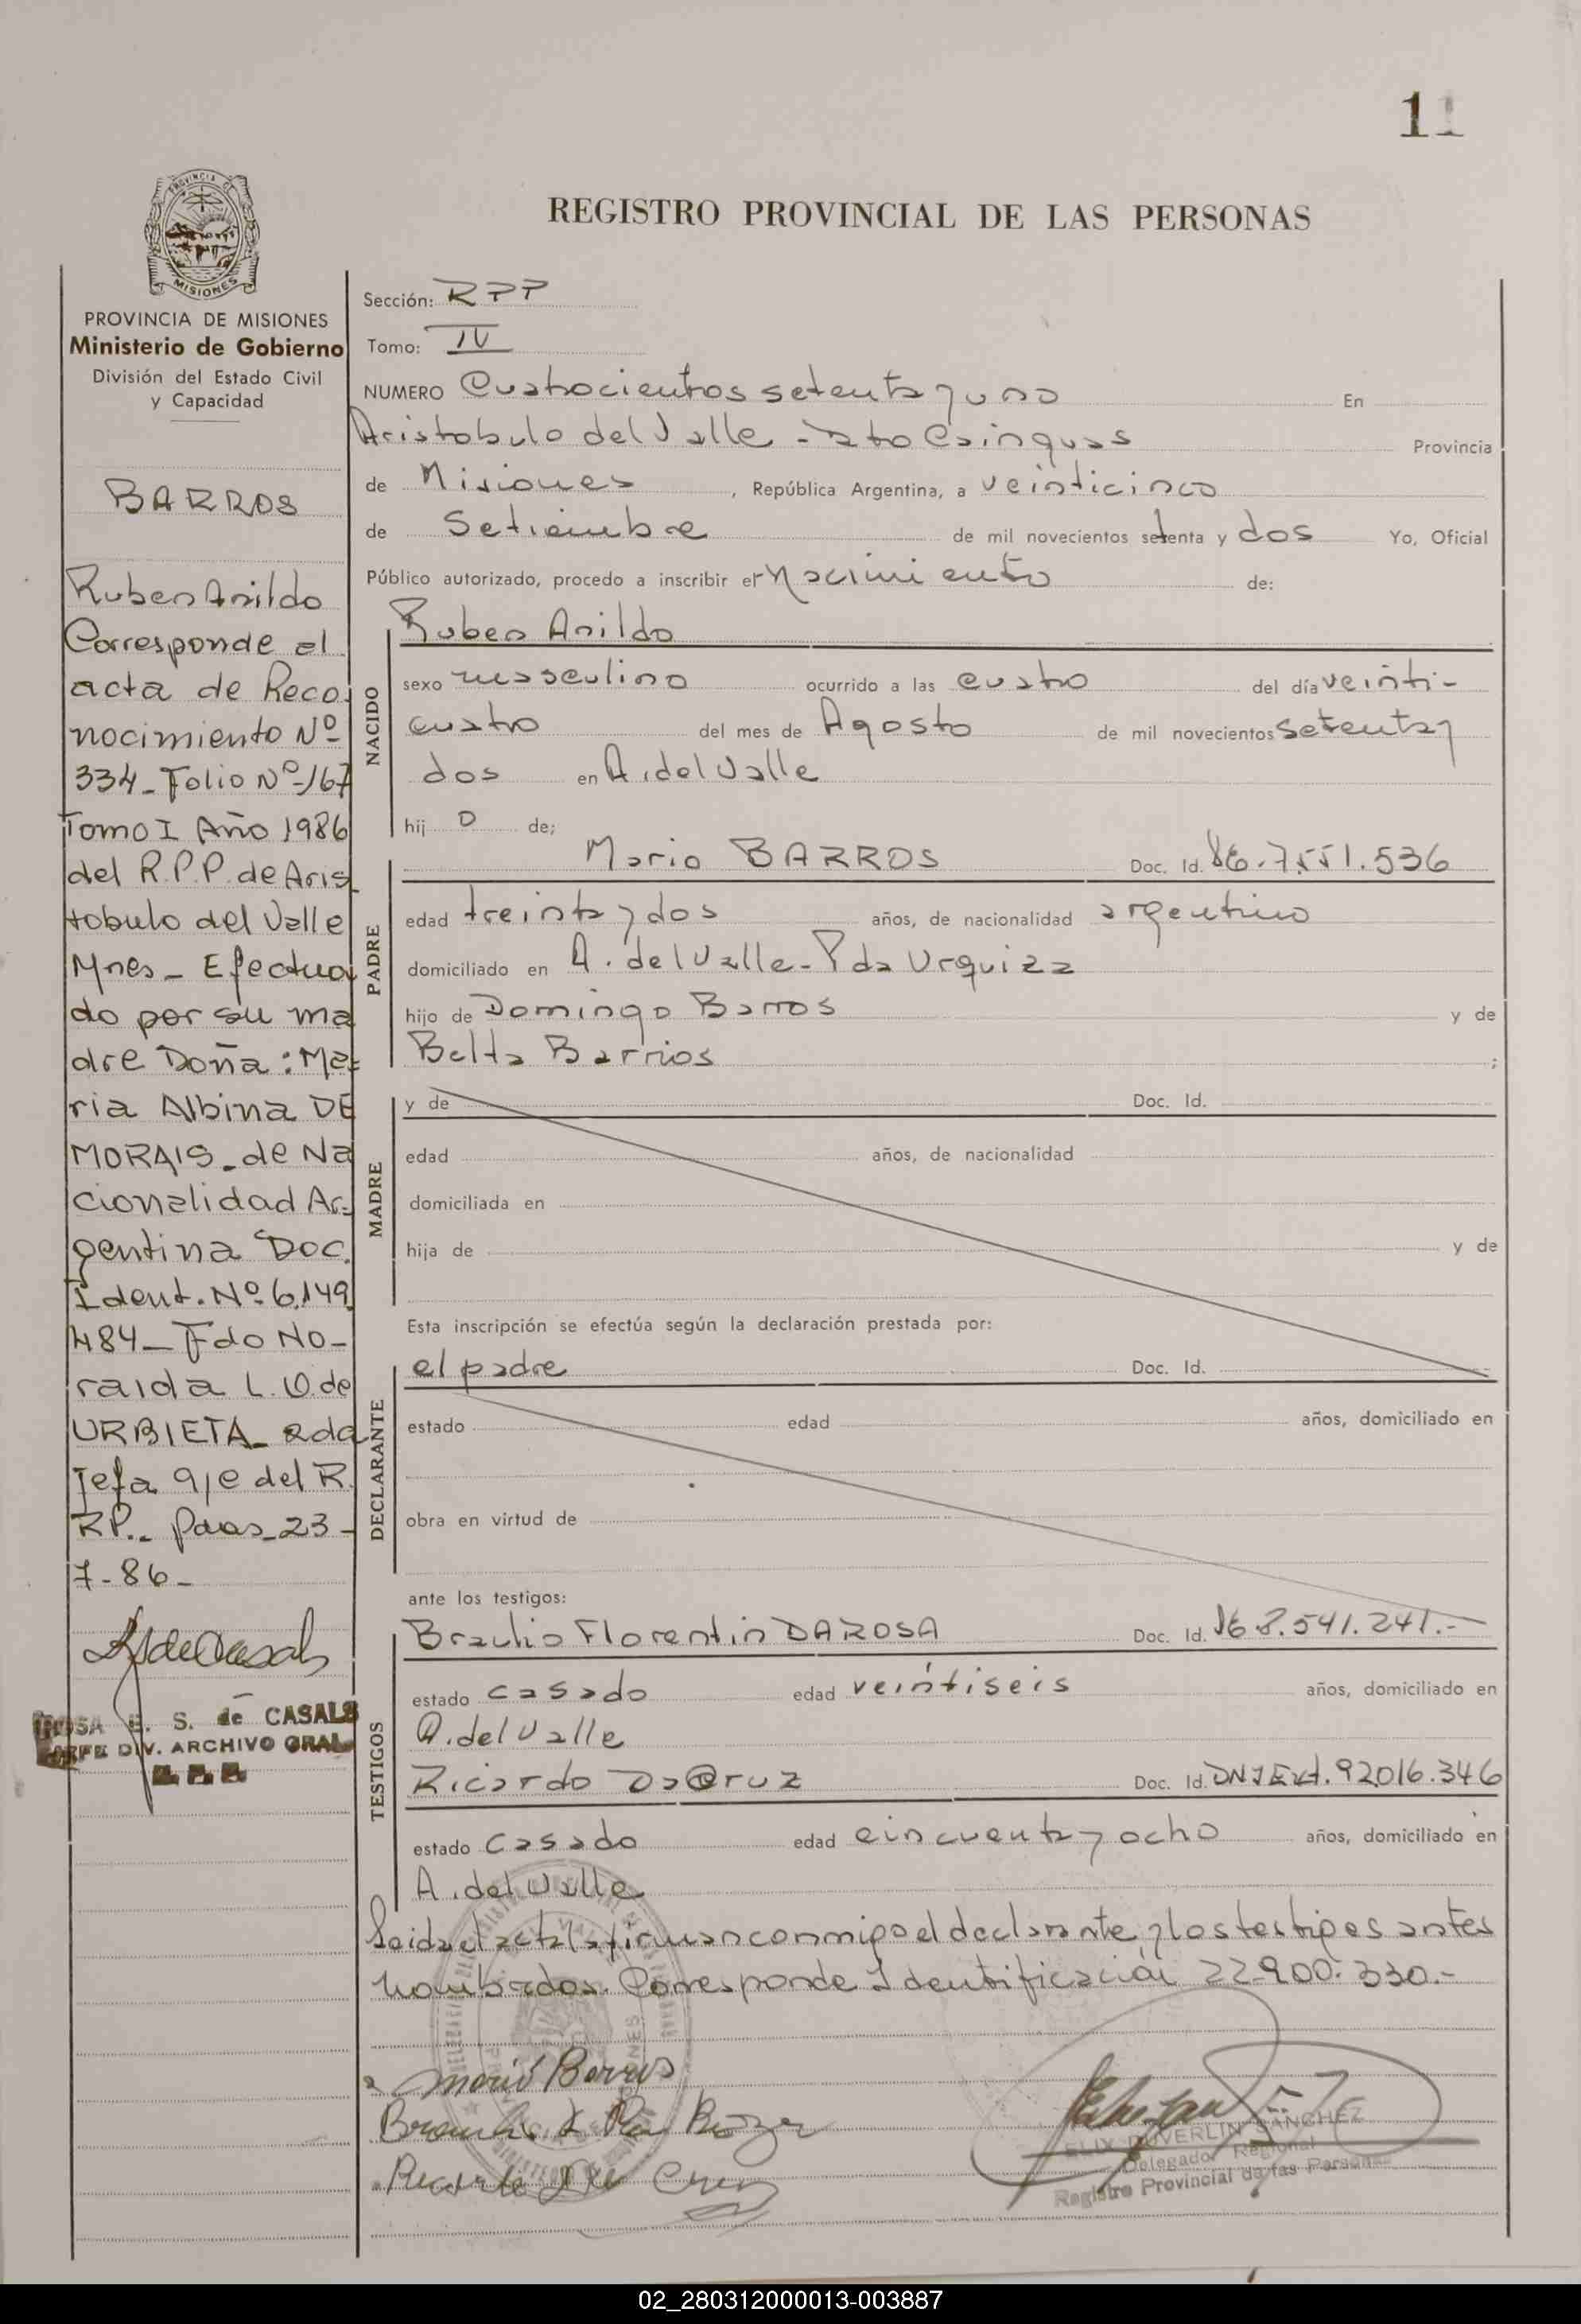 11
PROVINCIA DE
MISIONES
REGISTRO PROVINCIAL DE LAS PERSONAS
PROVINCIA DE MISIONES
Ministerio de Gobierno
División del Estado Civil
y Capacidad
BARROS
Ruben Anildo
Corresponde al
acta de Reco-
nocimiento Nº
334 - Folio Nº-167
Tomo I Año 1986
del R.P.P. de Aris
tobulo del Valle
Mnes - Efectua
do por su ma
dre Doña: Ma-
ria Albina DE
MORAIS - de Na
cionalidad Ar-
gentina Doc.
Ident. Nº 6.149.
484 - Fdo No-
raida L. O. de
URBIETA - 2da
Jefa a/c del R.
RP.. Pdas - 23 -
7 - 86 -
ROSA E. S. de CASALS
JEFE DIV. ARCHIVO GRAL
Sección: RPP
Tomo: IV
NUMERO Cuatrocientos setenta y uno En
Aristobulo del Valle - Dto Cainguas Provincia
de Misiones, República Argentina, a veinticinco
de Setiembre de mil novecientos setenta y dos Yo, Oficial
Público autorizado, procedo a inscribir el Nacimiento de:
NACIDO
Ruben Anildo
sexo masculino ocurrido a las cuatro del día veinti-
cuatro del mes de Agosto de mil novecientos setenta y
dos en A. del Valle
hij o de;
PADRE
Mario BARROS Doc. Id. 7.551.536
edad treinta y dos años, de nacionalidad argentino
domiciliado en A. del Valle - Pda Urquiza
hijo de Domingo Barros y de
Belta Barrios ;
MADRE
y de Doc. Id.
edad años, de nacionalidad
domiciliada en
hija de y de
Esta inscripción se efectúa según la declaración prestada por:
DECLARANTE
el padre Doc. Id.
estado edad años, domiciliado en
obra en virtud de
ante los testigos:
TESTIGOS
Braulio Florentin DAROSA Doc. Id. 8.541.241.-
estado casado edad veintiseis años, domiciliado en
A. del Valle
Ricardo Da Cruz Doc. Id. DNI Ext. 92016.346
estado casado edad cincuenta y ocho años, domiciliado en
A. del Valle
Leida el acta la firman conmigo el declarante y los testigos antes
nombrados. Corresponde Identificación 22.900.330.-
Mario Barros
Ricardo Da Cruz
FELIX DUVERLIN SANCHEZ
Delegado Regional
Registro Provincial de las Personas
02_280312000013-003887